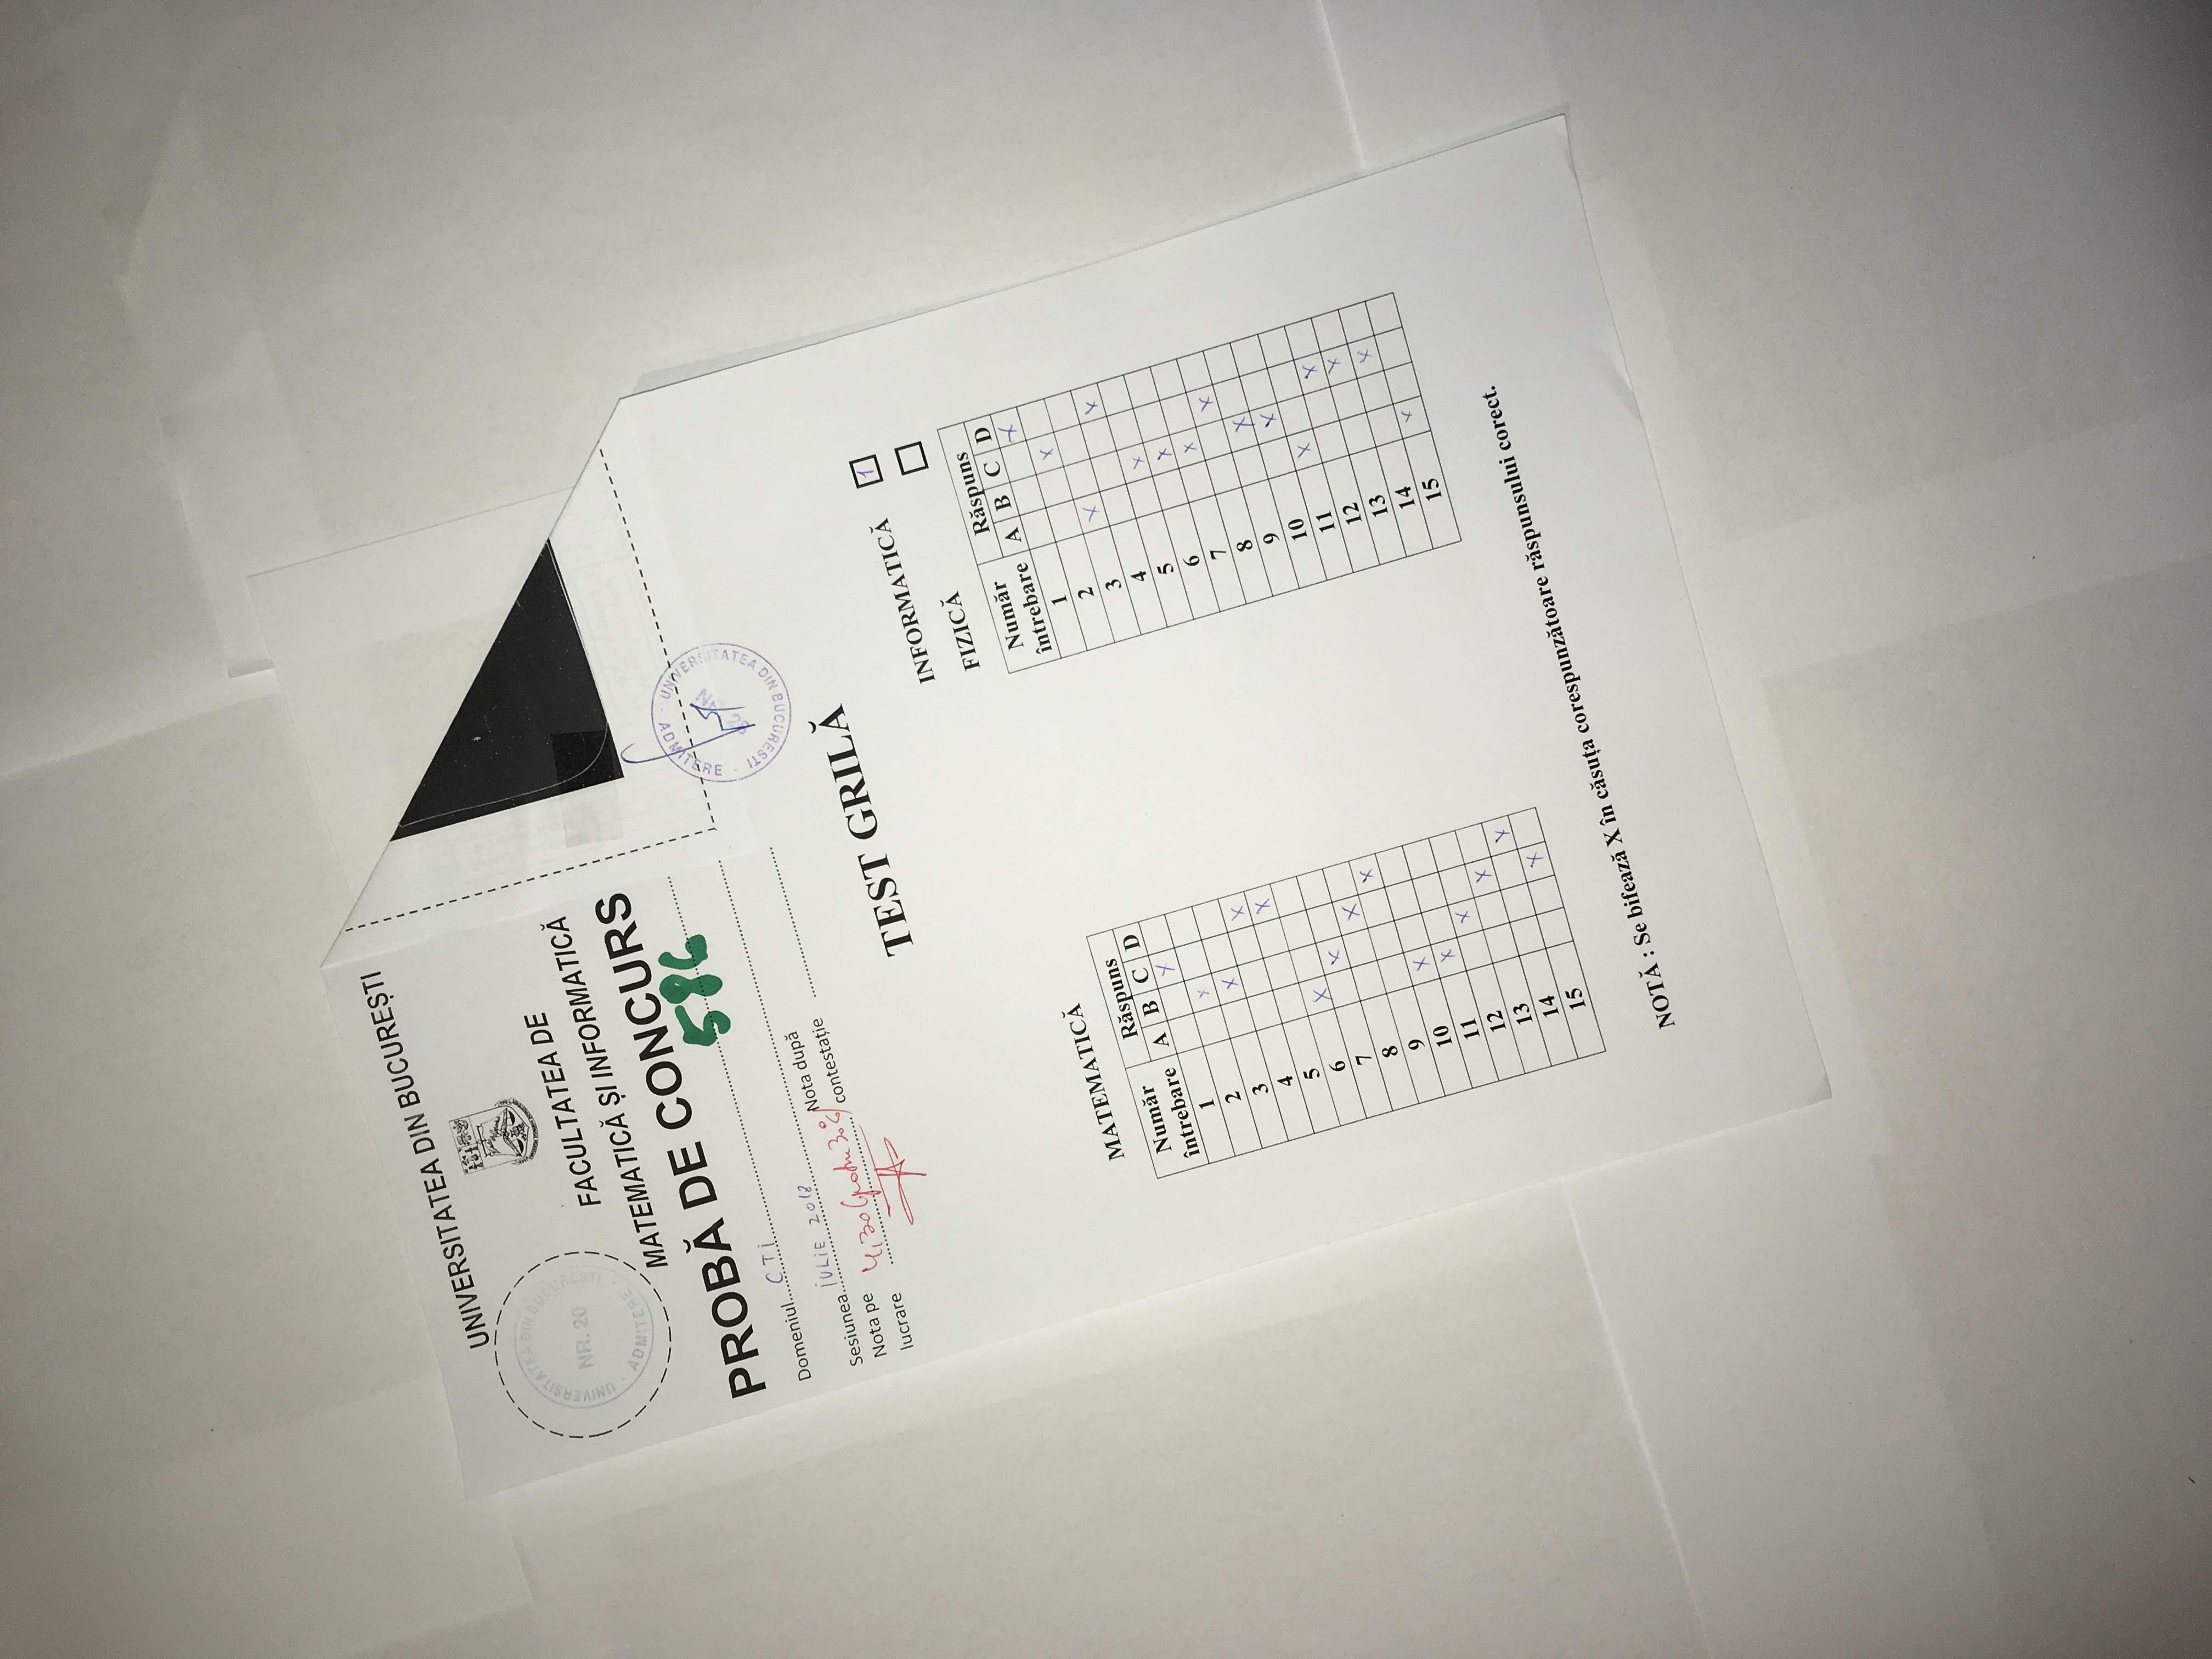 UNIVERSITATEA DIN BUCUREȘTI
UNIVERSITATEA DIN BUCUREȘTI · ADMITERE ·
NR. 20
FACULTATEA DE
MATEMATICĂ ȘI INFORMATICĂ
PROBĂ DE CONCURS
586
Domeniul CTI
Sesiunea IULIE 2018
Nota pe lucrare 4,30 (patru 30%)
Nota după contestație
UNIVERSITATEA DIN BUCURESTI · ADMITERE ·
TEST GRILĂ
INFORMATICĂ 1
FIZICĂ
MATEMATICĂ
Număr întrebare Răspuns
A B C D
1 X
2 X
3 X
4 X
5 X
6 X
7 X
8 X
9 X
10 X
11 X
12 X
13 X
14 X
15 X
Număr întrebare Răspuns
A B C D
1 X
2 X
3 X
4 X
5 X
6 X
7 X
8 X
9 X
10 X
11 X
12 X
13 X
14 X
15 X
NOTĂ : Se bifează X în căsuța corespunzătoare răspunsului corect.